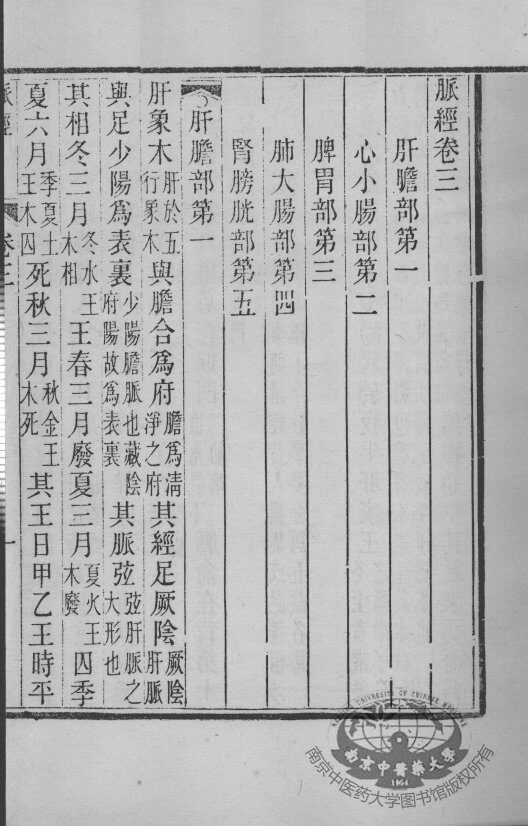 脈經卷三
肝膽部第一
心小腸部第二
脾胃部第三
肺大腸部第四
腎膀胱部第五
肝膽部第一
肝象木肝於五行象木與膽合爲府膽爲清淨之府其經足厥陰厥陰肝脈
與足少陽爲表裏少陽膽脈也藏陰府陽故爲表裏其脈弦弦肝脈之大形也
其相冬三月冬水王木相王春三月廢夏三月夏火王木廢囚季
夏六月季夏土王木囚死秋三月秋金王木死其王日甲乙王時平
脈經
卷三
一
UNIVERSITY OF CHINESE MEDICINE
南京中醫藥大學
1954
南京中医药大学图书馆版权所有